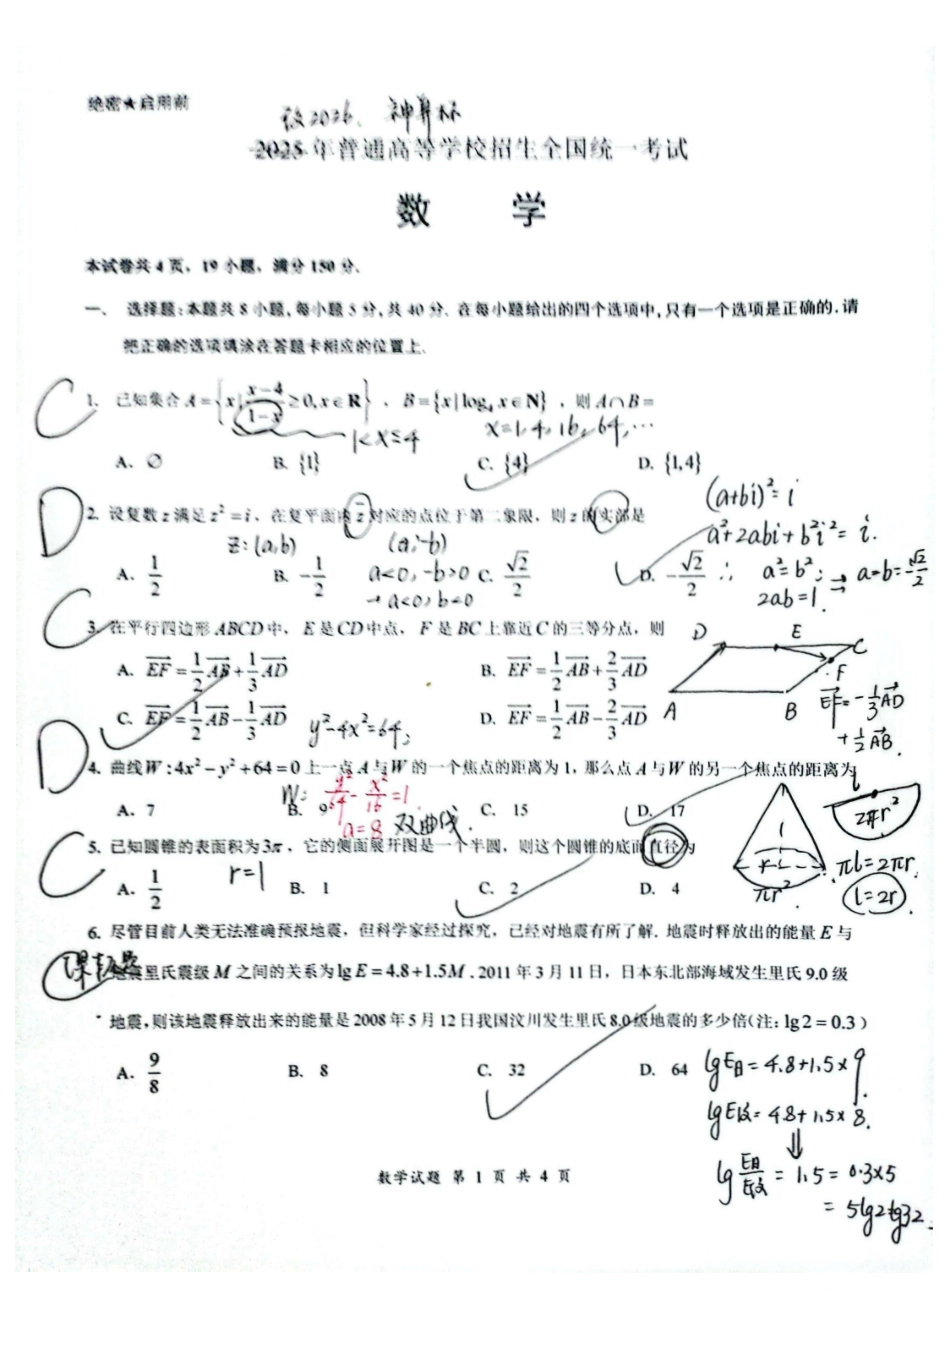 绝密★启用前
2026、神算杯
2025年普通高等学校招生全国统一考试
数 学
本试卷共4页，19小题，满分150分.
一、选择题:本题共8小题,每小题5分,共40分.在每小题给出的四个选项中,只有一个选项是正确的.请
把正确的选项填涂在答题卡相应的位置上.
C
1. 已知集合A={x|(x-4)/(1-x)≥0,x∈R}，B={x|log₄x∈N}，则A∩B=
1<x≤4
x=1,4,16,64,…
A. ∅ B. {1} C. {4} D. {1,4}
D
2. 设复数z满足z²=i，在复平面内z̄对应的点位于第二象限，则z的实部是
(a+bi)²=i
a²+2abi+b²i²=i.
z:(a,b) (a,-b)
A. 1/2 B. -1/2 C. √2/2 D. -√2/2
a<0,-b>0
→a<0,b<0
∴ a²=b²; 2ab=1. → a=b=-√2/2
C
3. 在平行四边形ABCD中，E是CD中点，F是BC上靠近C的三等分点，则
A. EF=1/2AB+1/3AD B. EF=1/2AB+2/3AD
C. EF=1/2AB-1/3AD D. EF=1/2AB-2/3AD
D E C F A B
EF=-1/3AD
+1/2AB.
y²-4x²=64;
D
4. 曲线W:4x²-y²+64=0上一点A与W的一个焦点的距离为1，那么点A与W的另一个焦点的距离为
A. 7 B. 9 C. 15 D. 17
W: y²/64-x²/16=1
a=8 双曲线.
C
5. 已知圆锥的表面积为3π，它的侧面展开图是一个半圆，则这个圆锥的底面直径为
r=1
A. 1/2 B. 1 C. 2 D. 4
l r πr²
l 2πr²
πl=2πr.
l=2r.
6. 尽管目前人类无法准确预报地震，但科学家经过探究，已经对地震有所了解.地震时释放出的能量E与
课本题
地震里氏震级M之间的关系为lgE=4.8+1.5M.2011年3月11日，日本东北部海域发生里氏9.0级
地震,则该地震释放出来的能量是2008年5月12日我国汶川发生里氏8.0级地震的多少倍(注:lg2=0.3)
A. 9/8 B. 8 C. 32 D. 64
lgE日=4.8+1.5×9.
lgE汶=4.8+1.5×8.
⇓
lg E日/E汶=1.5=0.3×5
=5lg2=lg32.
数学试题 第 1 页 共 4 页